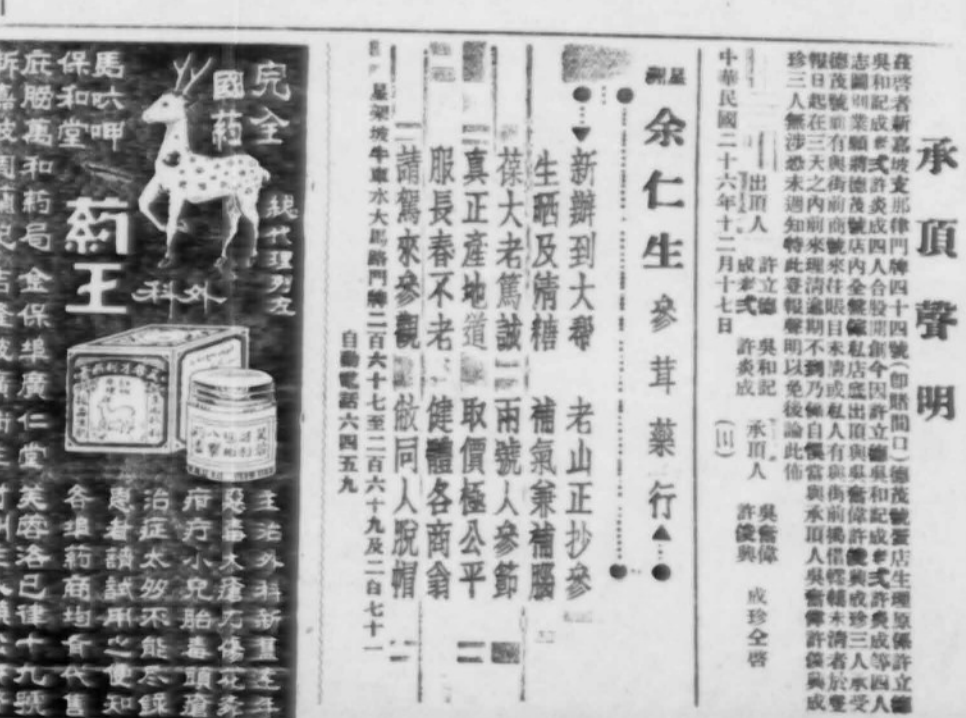 承頂聲明
茲啓者新嘉坡支那律門牌四十四號(卽賭間口)德茂號蛋店生理原係許立德
吳和記成聿弍許炎成四人合股開創今因許立德吳和記成聿弍許炎成等四人
志圖別業願將德茂號店內全盤傢私店底出頂與吳奮偉許儀興成珍三人承受
德茂號前有與街前商號來往賬目未清或私人有與街前揭借未清者於登
報日起在三天之內前來理清逾期不到乃係自悞當與承頂人吳奮偉許儀興成
珍三人無涉恐未週知特此登報聲明以免後論此佈
出頂人 許立德 吳和記 承頂人 吳奮偉 成珍仝啓
成聿弍 許炎成 許儀興
中華民國二十六年十二月十七日
星洲 余仁生 參茸藥行
新辦到大幫 老山正抄參
生晒及清糖 補氣兼補腦
葆大老篤誠 兩號人參節
真正產地道 取價極公平
服長春不老 健體各商翁
請駕來參觀 敝同人脫帽
星架坡牛車水大馬路門牌二百六十七至二百六十九及二百七十一
自動電話六四五九
完全
國葯
總代理列左
外科
葯王
馬六呷
保和堂
庇朥萬和葯局 金保埠廣仁堂
主治外科
惡毒大瘡刀傷
疳疔小兒胎毒頭瘡
治症太多不能尽錄
患者請試用之便知
各埠葯商均有代售
芙蓉洛巳律十九號